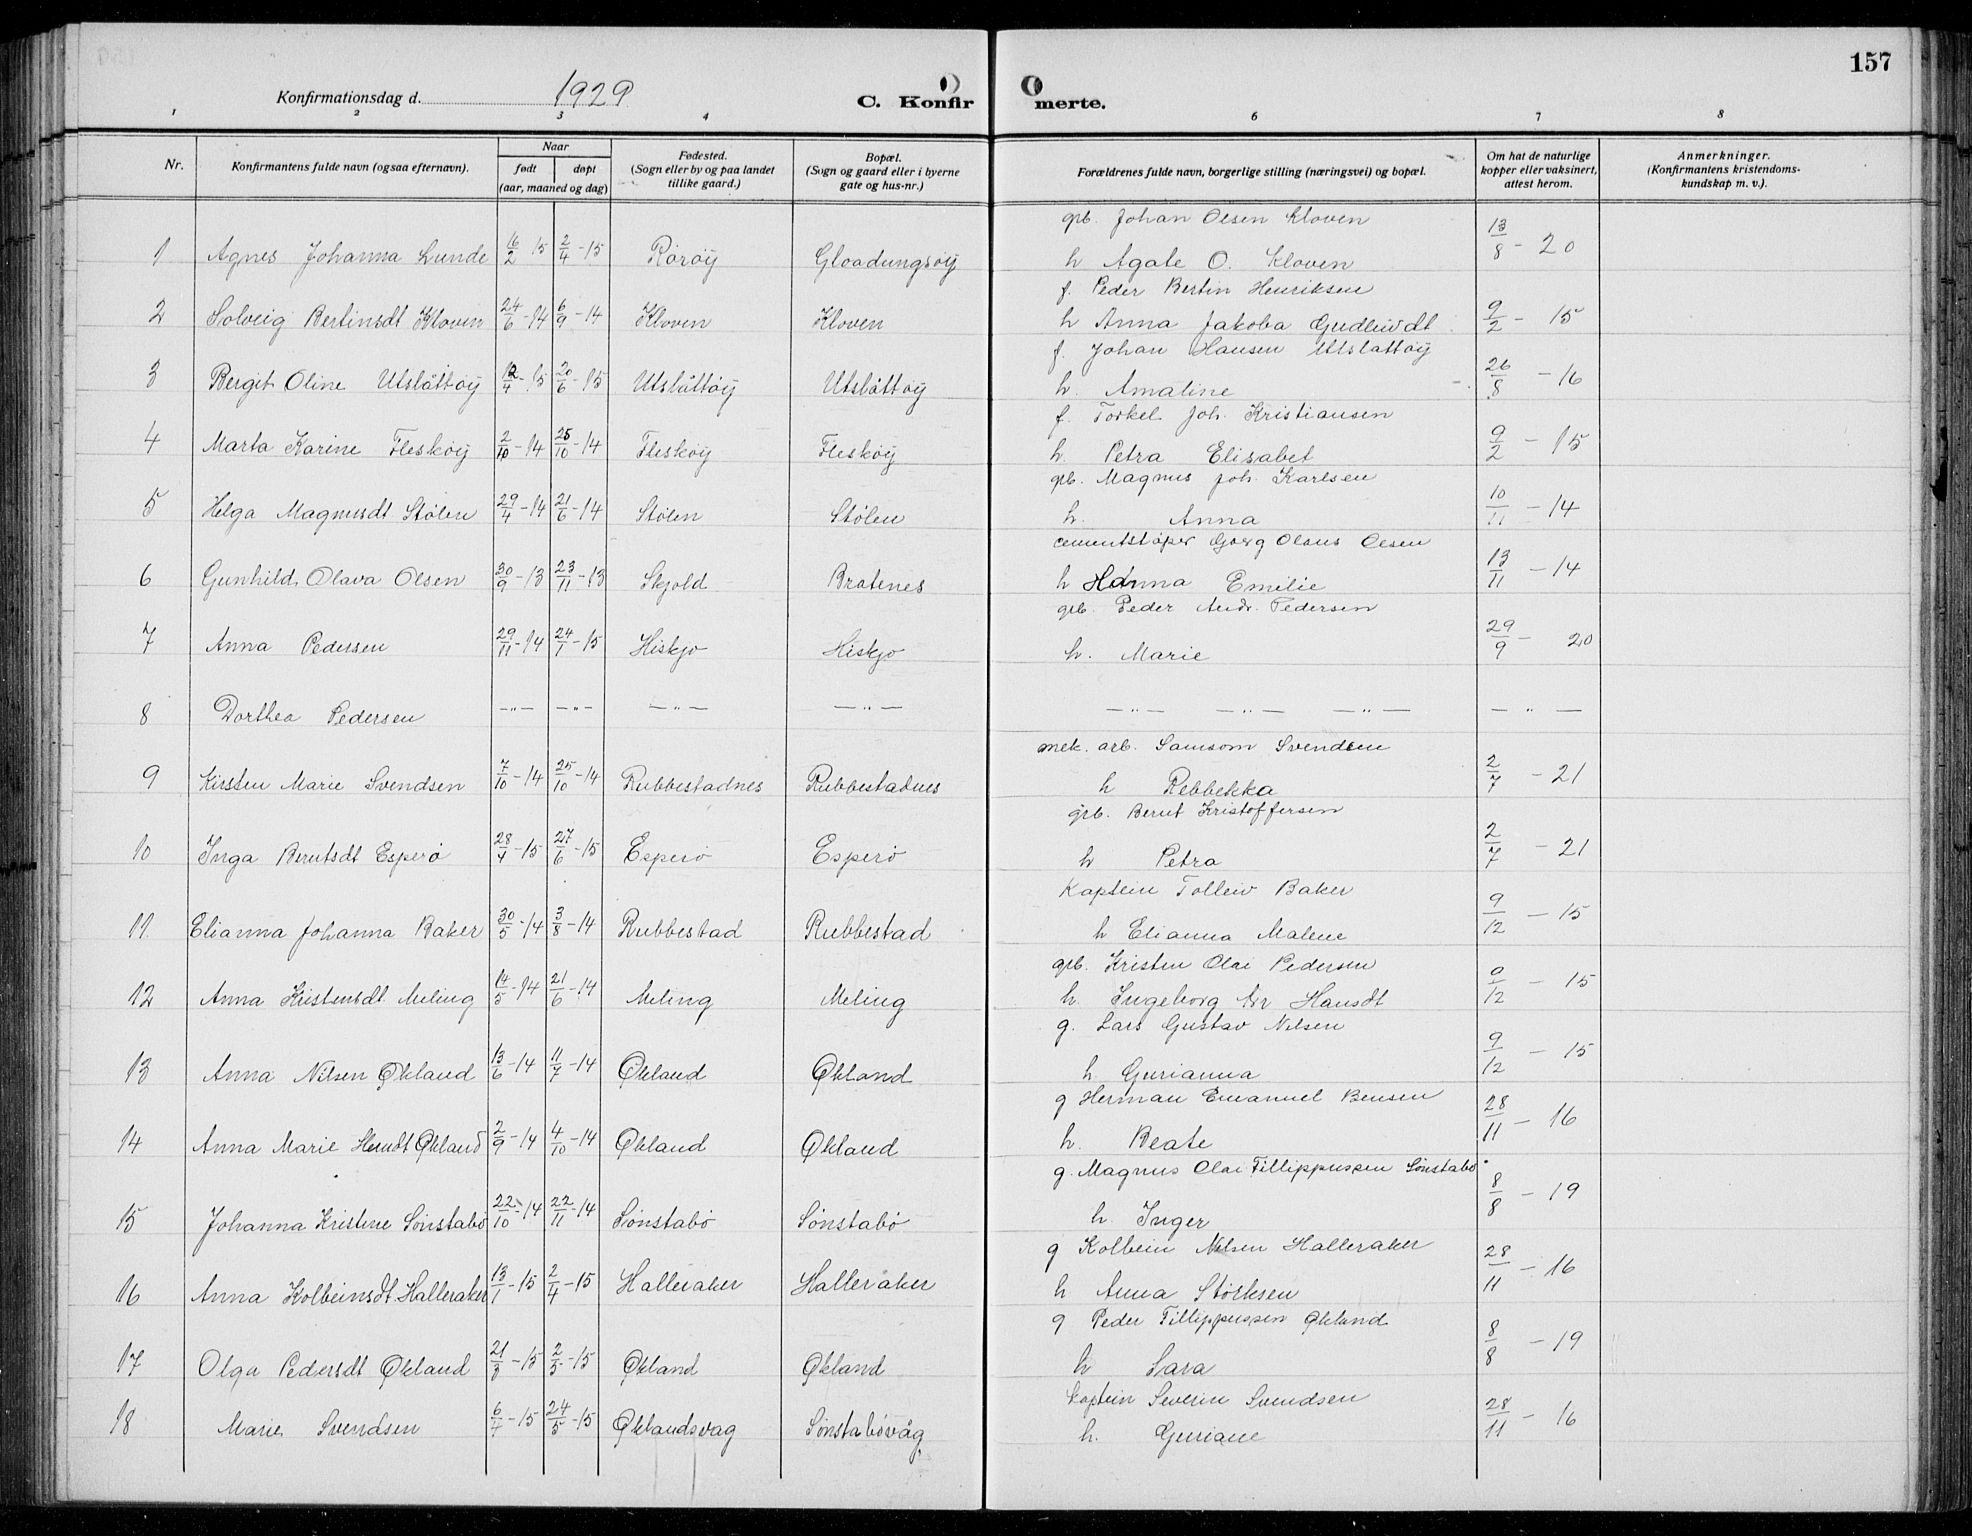 157
Konfirmationsdag d. 1929
C. Konfirmerte.
1 2 3 4 6 7 8
Nr.
Konfirmantens fulde navn (ogsaa efternavn).
Naar
født døpt
(aar, maaned og dag)
Fødested.
(Sogn eller by og paa landet
tillike gaard.)
Bopæl.
(Sogn og gaard eller i byerne
gate og hus-nr.)
Forældrenes fulde navn, borgerlige stilling (næringsvei) og bopæl.
Om hat de naturlige
kopper eller vaksinert,
attest herom.
Anmerkninger.
(Konfirmantens kristendoms-
kundskap m. v.).
grb. Johan Olsen Kloven
1 Agnes Johanna Lunde 16/2-15 2/4-15 Rorøy Gloadungsøy h Agate O. Kloven 13/8-20
f. Peder Bertin Henriksen
2 Solveig Bertinsdt Kloven 24/6-14 6/9-14 Kloven Kloven h Anna Jakoba Gudleivdt 9/2-15
f. Johan Hansen Utslåttøy
3 Bergit Oline Utslåttøy 12/4-15 20/6-15 Utslåttøy Utslåttøy h. Amaline 26/8-16
f. Torkel Joh. Kristiansen
4 Marta Karine Fleskøy 2/10-14 25/10-14 Fleskøy Fleskøy h. Petra Elisabet 9/2-15
grb. Magnus Joh. Karlsen
5 Helga Magnusdt Stølen 29/4-14 21/6-14 Stølen Stølen h. Anna 10/11-14
cementstøper Georg Olaus Olsen
6 Gunhild Olava Olsen 30/9-13 23/11-13 Skjold Bratenes h Hanna Emelie 13/11-14
grb. Peder Andr. Pedersen
7 Anna Pedersen 29/11-14 24/1-15 Hiskjo Hiskjo h. Marie 29/9-20
8 Dorthea Pedersen —"— —"— —"— —"— —"— —"— —"— —"—
mek. arb. Samsom Svendsen
9 Kirsten Marie Svendsen 7/10-14 25/10-14 Rubbestadnes Rubbestadnes h Rebbekka 2/7-21
grb. Berut Kristoffersen
10 Inga Berutsdt Esperø 28/4-15 27/6-15 Esperø Esperø h Petra 2/7-21
Kaptein Tolleiv Baker
11 Elianna Johanna Baker 30/5-14 3/8-14 Rubbestad Rubbestad h Elianna Malene 9/12-15
grb. Kristen Olai Pedersen
12 Anna Kristensdt Meling 14/5-14 21/6-14 Meling Meling h. Ingeborg Hansdt 9/12-15
g. Lars Gustav Nilsen
13 Anna Nilsen Økland 13/6-14 11/7-14 Økland Økland h. Gurianna 9/12-15
g Herman Emanuel Bensen
14 Anna Marie Hermdt Økland 2/9-14 4/10-14 Økland Økland h. Beate 28/11-16
g. Magnus Olai Fillippussen Sønstabø
15 Johanna Kristine Sønstabø 22/10-14 22/11-14 Sønstabø Sønstabø h. Inger 8/8-19
g Kolbein Nilsen Halleraker
16 Anna Kolbeinsdt. Halleraker 13/1-15 2/4-15 Halleraker Halleraker h Anna Størksen 28/11-16
g Peder Fillippussen Økland
17 Olga Pedersdt Økland 21/3-15 2/5-15 Økland Økland h Sara 8/8-19
Kaptein Severin Svendsen
18 Marie Svendsen 6/4-15 24/5-15 Øklandsvag Sønstabøvåg h. Guriane 28/11-16